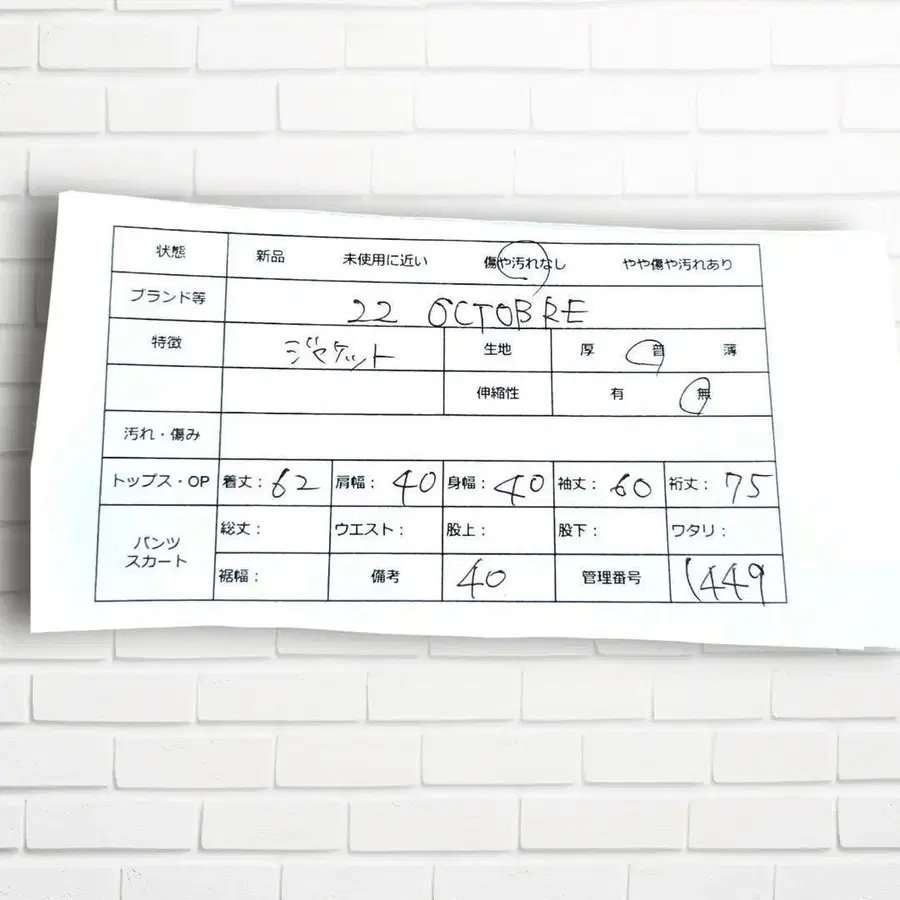 状態 新品 未使用に近い 傷や汚れなし やや傷や汚れあり
ブランド等 22 OCTOBRE
特徴 ジャケット 生地 厚 普 薄
伸縮性 有 無
汚れ・傷み
トップス・OP 着丈：62 肩幅：40 身幅：40 袖丈：60 裄丈：75
パンツ スカート 総丈： ウエスト： 股上： 股下： ワタリ：
裾幅： 備考 40 管理番号 1449